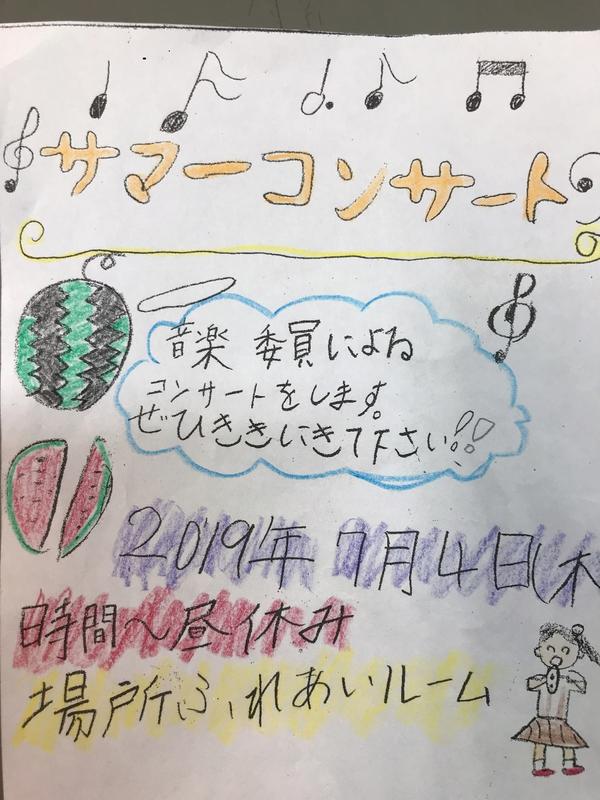 サマーコンサート
音楽 委員による
コンサートをします。
ぜひききにきて下さい!!
2019年 7月4日(木
時間〜昼休み
場所ふれあいルーム